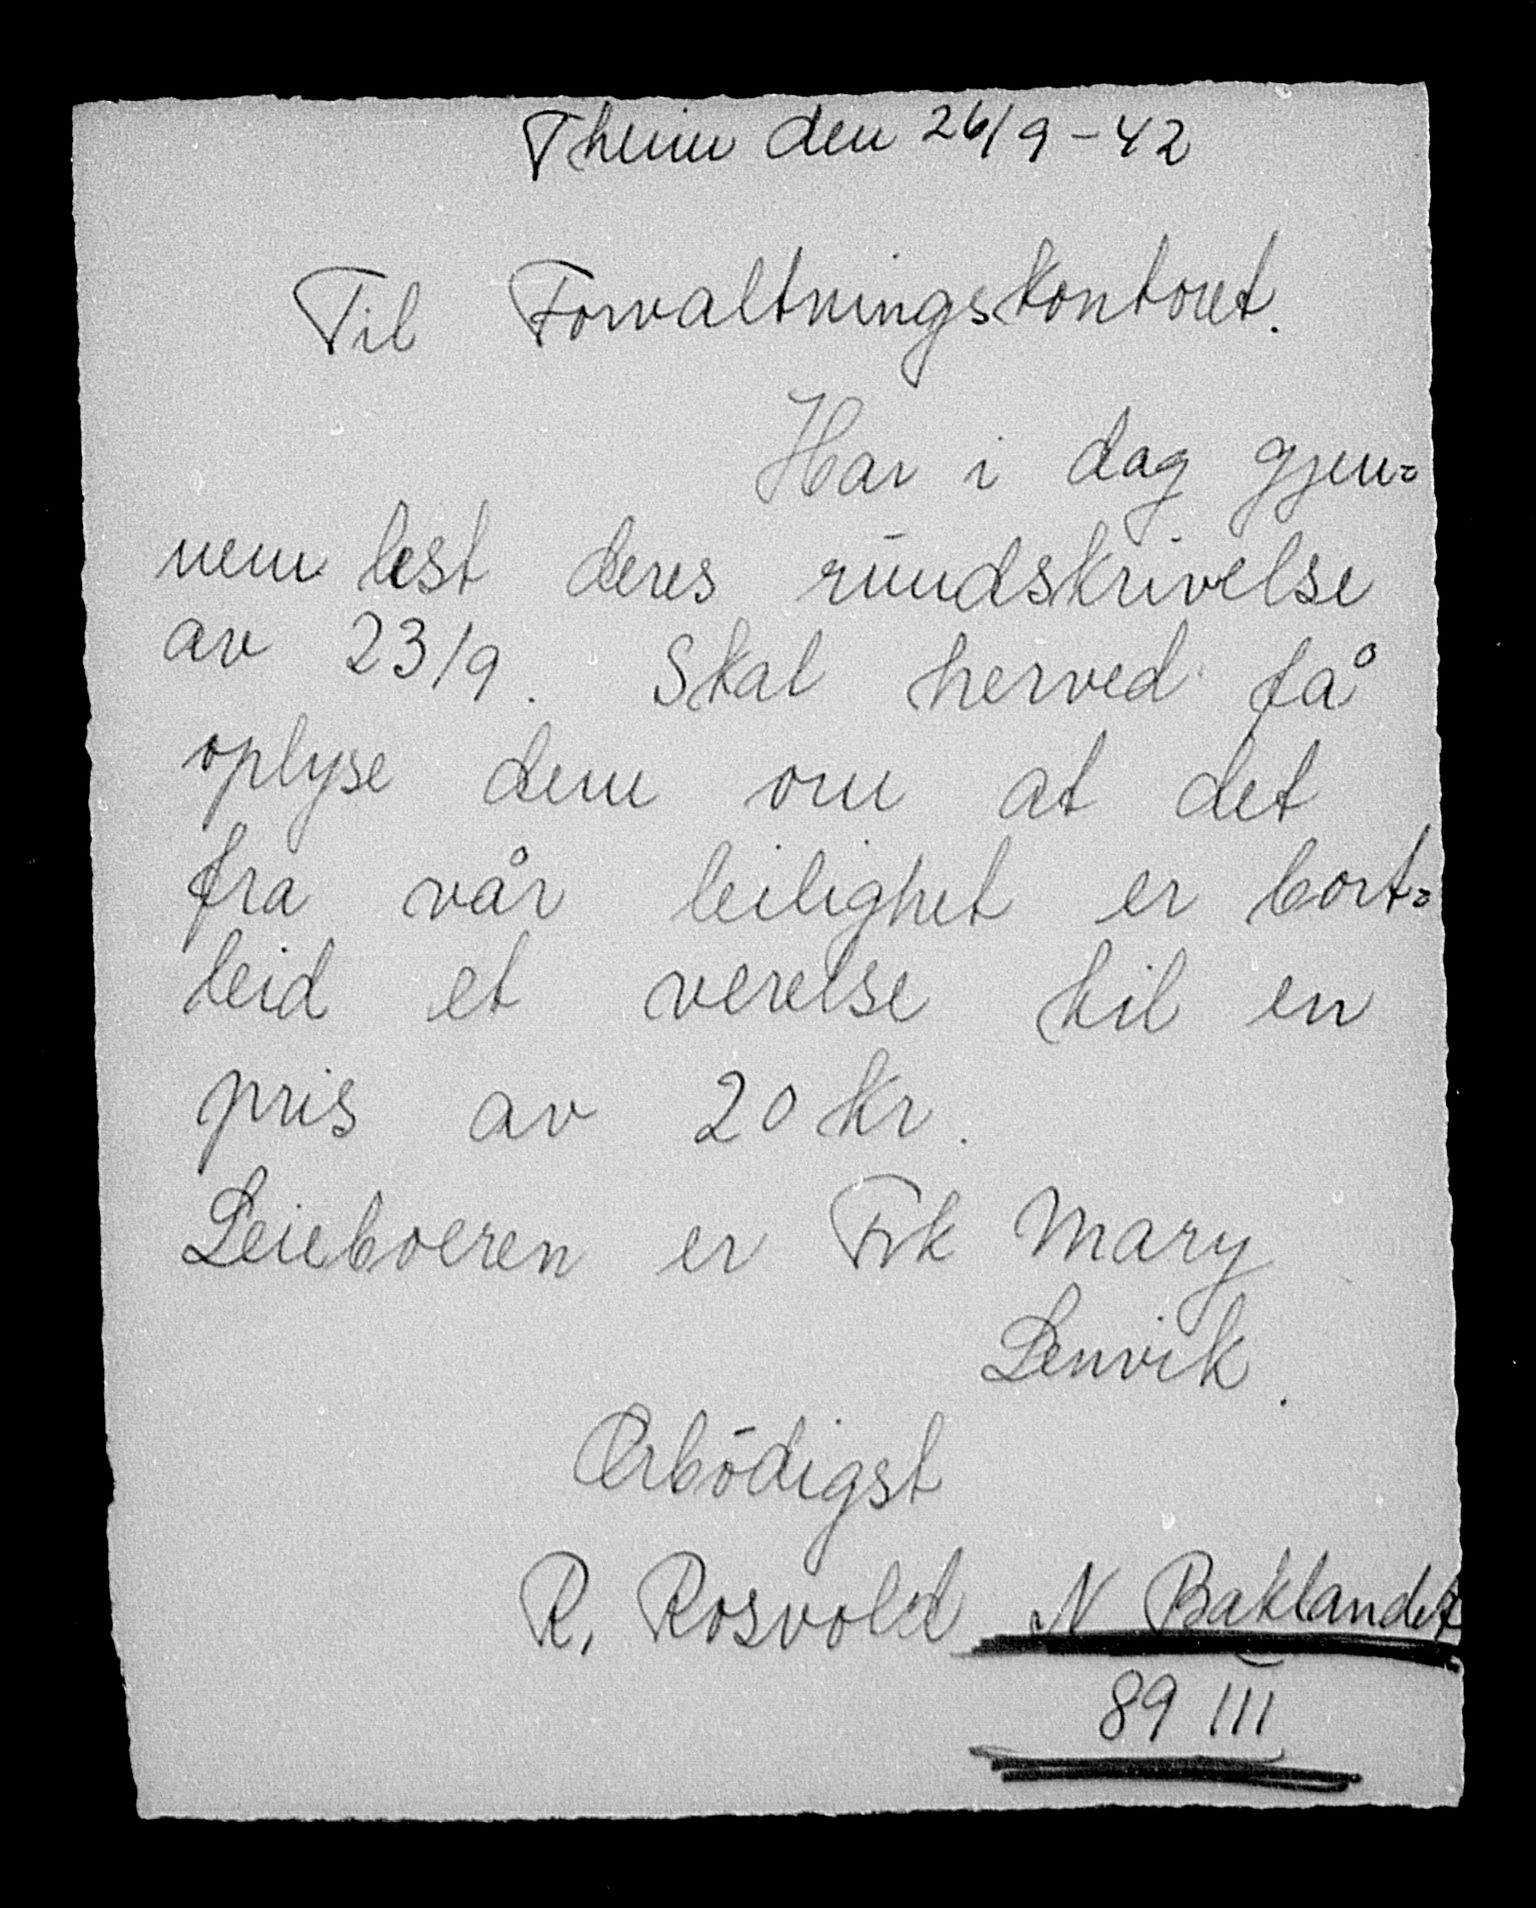 Theim den 26/9-42
Til Forvaltningskontoret.
Har i dag gjen=
nem lest deres rundskrivelse
av 23/9. Skal herved få
oplyse dem om at det
fra vår leilighet er bort=
leid et verelse til en
pris av 20 kr.
Leieboeren er Frk Mary
Lenvik.
Ærbödigst
R. Rosvold N Baklandet
89 III